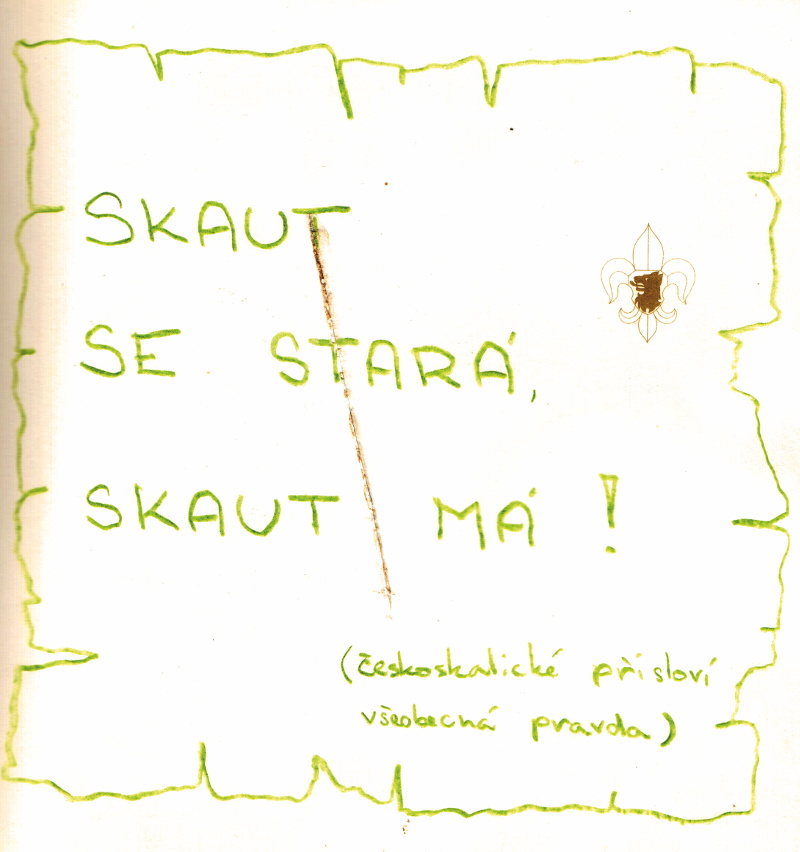 SKAUT
SE STARÁ,
SKAUT MÁ!
(českoskalické přísloví
všeobecná pravda)